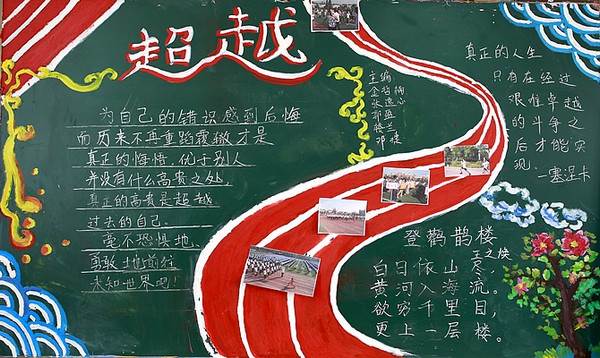 超越
为自己的错误感到后悔
而历来不再重蹈覆辙才是
真正的悔悟.优于别人
并没有什么高贵之处,
真正的高贵是超越
过去的自己.
毫不恐惧地、
勇敢地前往
未知世界吧!
主编
郭蕊
邓
真正的人生
只有在经过
艰难卓越
的斗争之
后才能实
现.
—塞涅卡
登鹳鹊楼
王之涣
白日依山尽,
黄河入海流。
欲穷千里目,
更上一层楼。